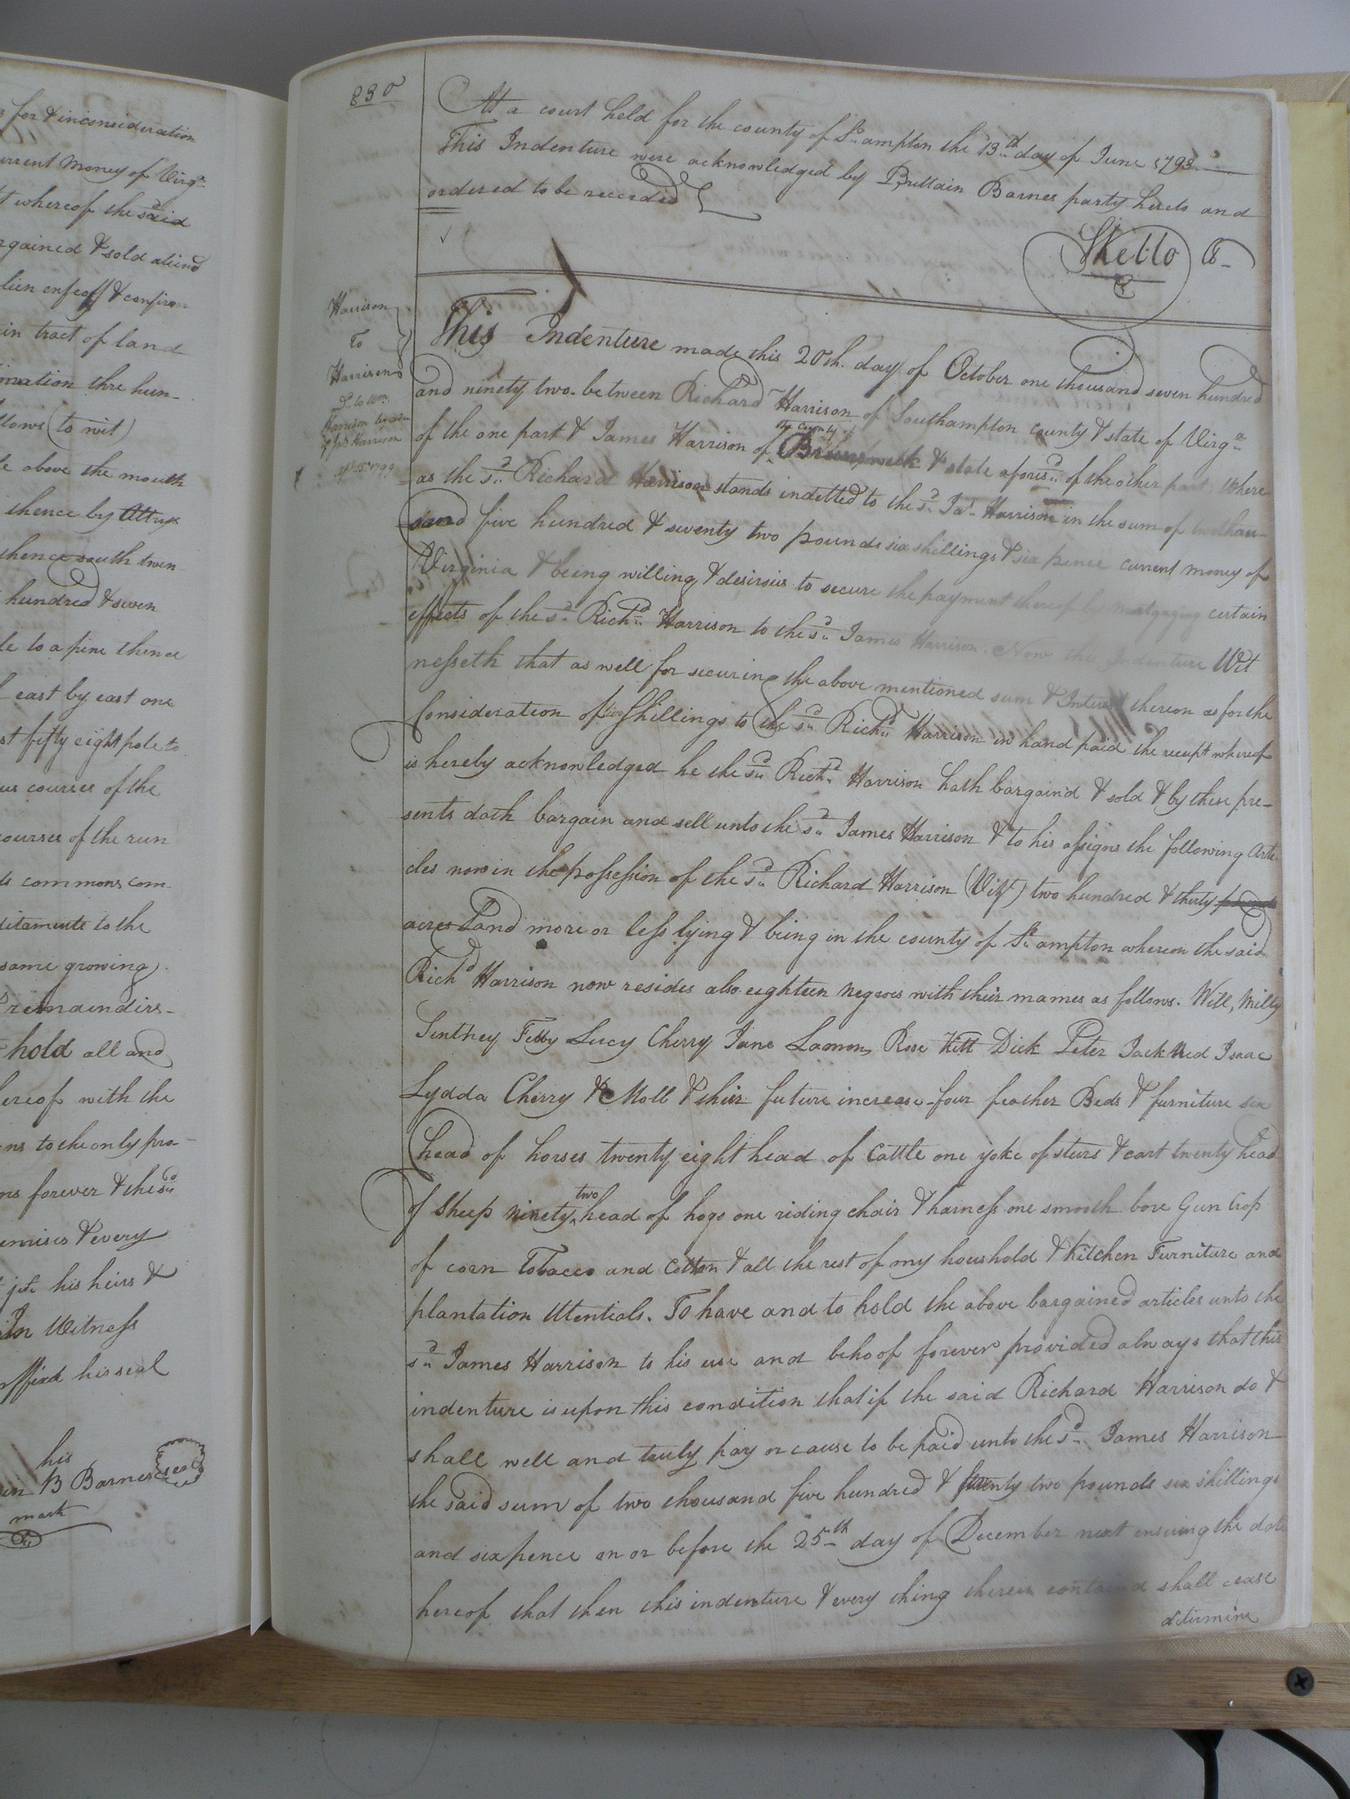 s for & inconsideration
urrent money of Virga
t whereof the said
rgained & sold aliend
lien enfeoff & confirm
in tract of land
imation thre hun-
llows (to wit)
le above the mouth
thence by
thence south twen
hundred & seven
le to a pine thence
east by east one
st fifty eight pole to
us courses of the
courses of the run
ds commons com
ditaments to the
same growing
remainders-
hold all and
hereof with the
ns to the only pro-
ns forever & the sd
emises & every
his heirs &
In Witness
affixd his seal
his
in B Barnes seal
mark
230
At a court held for the county of So.ampton the 13th day of June 1793.
This Indenture were acknowledged by Brittain Barnes party hereto and
ordered to be recorded
Harrison
To
Harrison
This Indenture made this 20th. day of October one thousand seven hundred
and ninety two between Richard Harrison of Southampton county & state of Virga
of the one part & James Harrison of the County Brunswick & state aforesd of the other part Where
as the sd Richard Harrison stands indetted to the sd Jas Harrison in the sum of two thou-
sand five hundred & seventy two pounds six shillings & six pence current money of
Virginia & being willing & desirous to secure the payment thereof by mortgaging certain
effects of the sd Richd Harrison to the sd James Harrison. Now this Indenture Wit
nesseth that as well for securing the above mentioned sum & Interest thereon as for the
Consideration of five Shillings to the sd Richd Harrison in hand paid the receipt whereof
is hereby acknowledged he the sd Richd Harrison hath bargain'd & sold & by these pre-
sents doth bargain and sell unto the sd James Harrison & to his assigns the following arti-
cles now in the possession of the sd Richard Harrison (Vizt) two hundred & thirty
acres Land more or less lying & being in the county of So.ampton whereon the said
Richd Harrison now resides also eighteen negroes with their names as follows. Will, Milly
Sinthey Febby Lucy Cherry Jane Lamon Rose Kitt Dick Peter Jack Ned Isaac
Lydda Cherry & Moll & their future increase four feather Beds & furniture six
head of horses twenty eight head of Cattle one yoke of sturs & cart twenty head
of Sheep ninety two head of hogs one riding chair & harness one smooth bore Gun Crop
of corn Tobacco and Cotton & all the rest of my houshold & Kitchen Furniture and
plantation Utentials. To have and to hold the above bargained articles unto the
sd James Harrison to his use and behoof forever provided always that this
indenture is upon this condition that if the said Richard Harrison do &
shall well and truly pay or cause to be paid unto the sd James Harrison
the said sum of two thousand five hundred & two pounds six shillings
and six pence on or before the 25th day of December next ensuing the date
hereof that then this indenture & every thing therein contained shall cease
determine